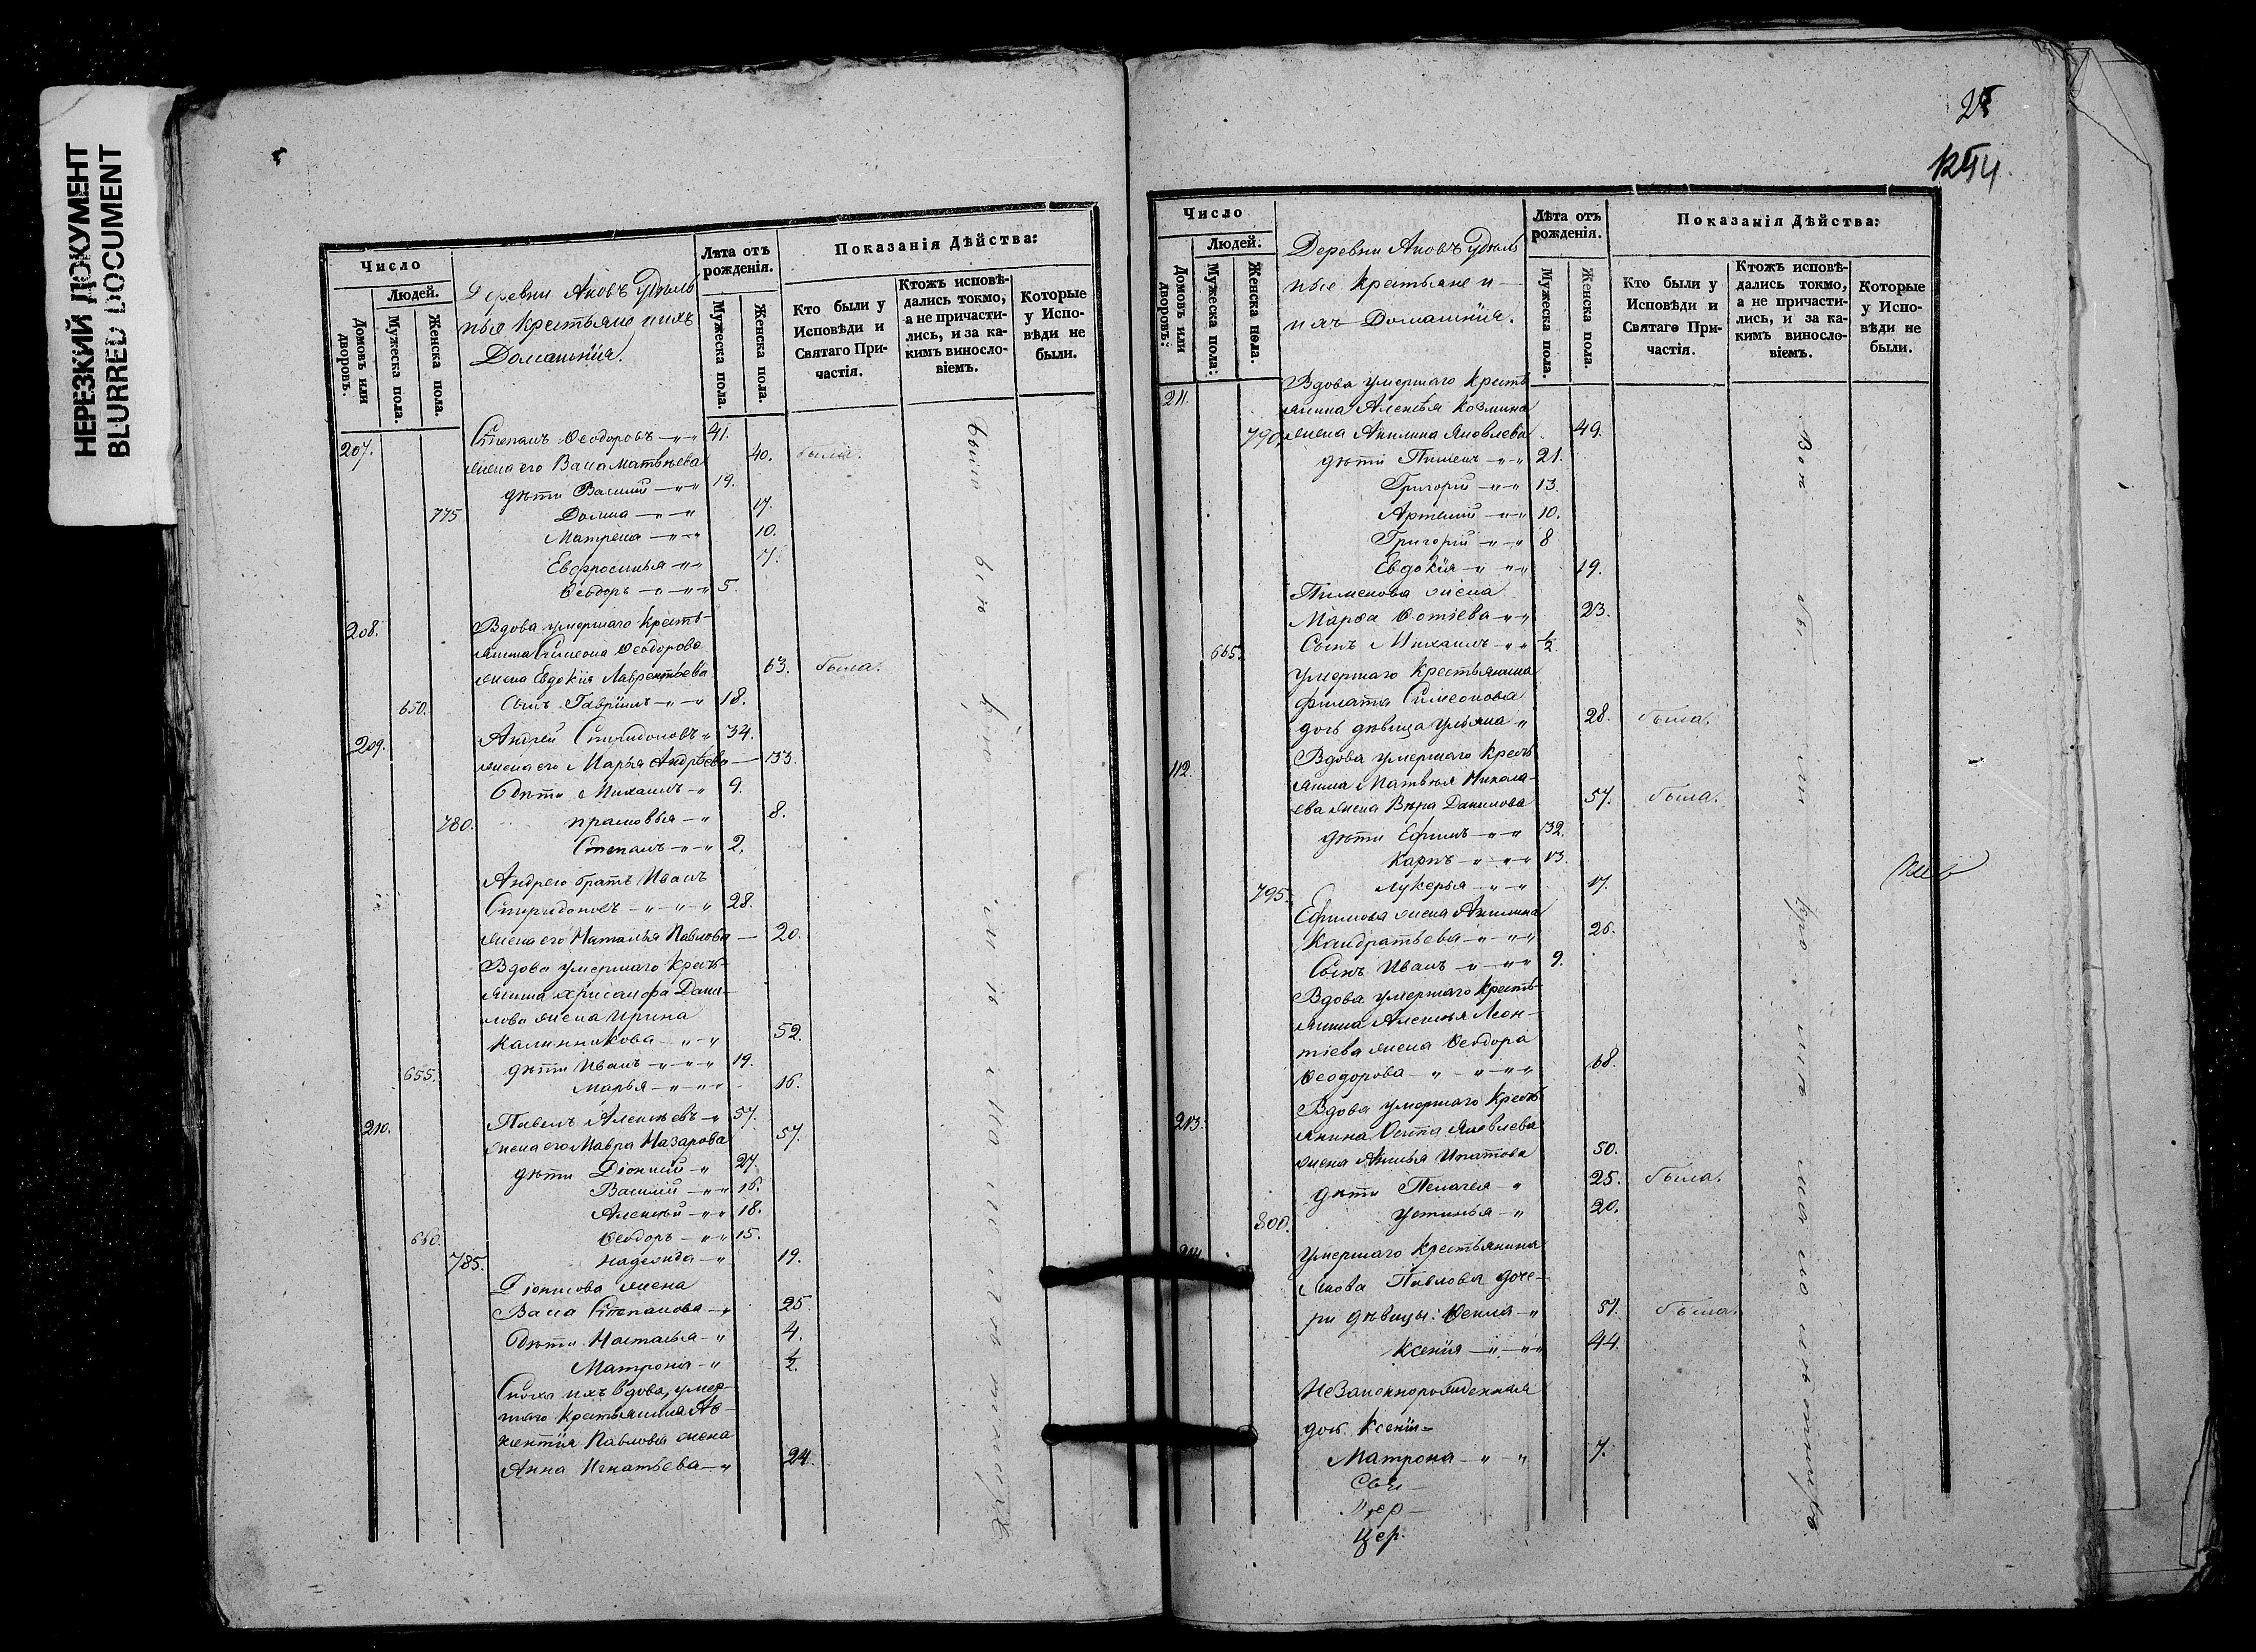 НЕРЕЗКИЙ ДОКУМЕНТ
BLURRED DOCUMENT
Число
Людей.
Домовъ или дворовъ.
Мужеска пола.
Женска пола.
Деревни Яковъ Удѣль
ные крестьяне и ихъ
Домашнія.
Лѣта отъ рожденія.
Мужеска пола.
Женска пола.
Показанія Дѣйства:
Кто были у Исповѣди и Святаго Причастія.
Ктожъ исповѣдались токмо, а не причастились, и за какимъ винословіемъ.
Которые у Исповѣди не были.
207. Степанъ Ѳеодоровъ 41.
жена его Васа Матвѣева 40. была.
дѣти Василій 19.
775 Домна 17.
Матрена 10.
Евфросинья 7.
Ѳеодоръ 5.
208. Вдова умершаго кресть-
янина Симеона Ѳеодорова
жена Евдокія Лаврентьева 63. была.
650. сынъ Гавріилъ 18.
209. Андрей Спиридоновъ 34.
жена его Марья Андрѣева 33.
дѣти Михаилъ 9.
780. Прасковья 8.
Степанъ 2.
Андрея братъ Иванъ
Спиридоновъ 28.
жена его Наталья Павлова 20.
Вдова умершаго кресть-
янина Хрисанфа Дани-
лова жена Ирина
Калинникова 52.
655. дѣти Иванъ 19.
Марья 16.
210. Павелъ Алексѣевъ 57.
жена его Мавра Назарова 57.
дѣти Діонисій 27.
Василій 16.
Алексѣй 18.
660. Ѳеодоръ 15.
785. Надежда 19.
Діонисова жена
Васа Степанова 25.
дѣти Настасья 4.
Матрона ½.
Сноха ихъ вдова, умер-
шаго крестьянина
Павлова жена
Анна Игнатьева 24.
25
Число
Людей.
Домовъ или дворовъ.
Мужеска пола.
Женска пола.
Деревни Яковъ Удѣль
ные крестьяне и
ихъ Домашнія.
Лѣта отъ рожденія.
Мужеска пола.
Женска пола.
Показанія Дѣйства:
Кто были у Исповѣди и Святаго Причастія.
Ктожъ исповѣдались токмо, а не причастились, и за какимъ винословіемъ.
Которые у Исповѣди не были.
211. Вдова умершаго кресть
янина Алексѣя Козмина
790. жена Акилина Яковлева 49.
дѣти Пименъ 21.
Григорій 13.
Артемій 10.
Григорій 8
Евдокія 19.
Пименова жена
Марѳа Фотіева 23.
665. Сынъ Михаилъ ½.
Умершаго крестьянина
Филата Симеонова
дочь дѣвица Ульяна 28. была.
112. Вдова умершаго кресть
янина Матвѣя Никола-
ева жена Вѣра Данилова 57. была.
дѣти Ефимъ 32.
Карпъ 13.
795. Лукерья 17.
Ефимова жена Акилина
Кандратьева 26.
Сынъ Иванъ 9.
Вдова умершаго кресть-
янина Алексѣя Леон-
тіева жена Ѳеодора
Ѳеодорова 68.
213. Вдова умершаго кресть
янина Яковлева
жена Ипатова 50.
дѣти Пелагея 25. была.
800. Устинья 20.
Умершаго крестьянина
Якова Павлова доче-
ри дѣвицы: Ѳекла 51. была.
Ксенія 44.
Незаконнорожденная
дочь Ксеніи
Матрона 7.
Цер.